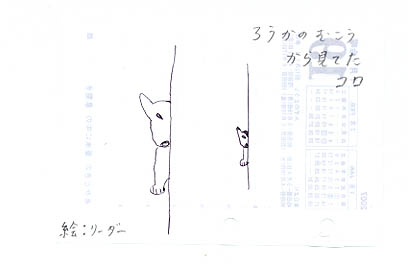 ろうかのむこう
から見てた
コロ
絵：リーダー